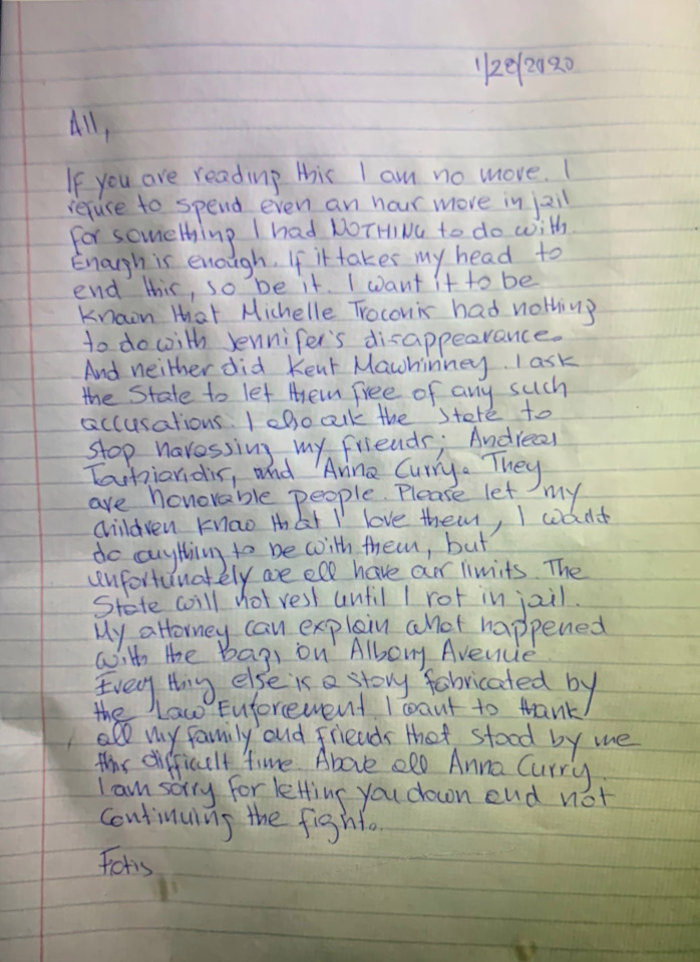 1/28/2020
All,
If you are reading this I am no more. I
refuse to spend even an hour more in jail
for something I had NOTHING to do with.
Enough is enough. If it takes my head to
end this, so be it. I want it to be
known that Michelle Troconis had nothing
to do with Jennifer's disappearance.
And neither did Kent Mawhinney. I ask
the State to let them free of any such
accusations. I also ask the State to
stop harassing my friends; Andreas
Toutziaridis, and Anna Curry. They
are honorable people. Please let my
children know that I love them, I would
do anything to be with them, but
unfortunately we all have our limits. The
State will not rest until I rot in jail.
My attorney can explain what happened
with the bags on Albany Avenue.
Everything else is a story fabricated by
the Law Enforcement. I want to thank
all my family and friends that stood by me
this difficult time. Above all Anna Curry.
I am sorry for letting you down and not
continuing the fight.
Fotis